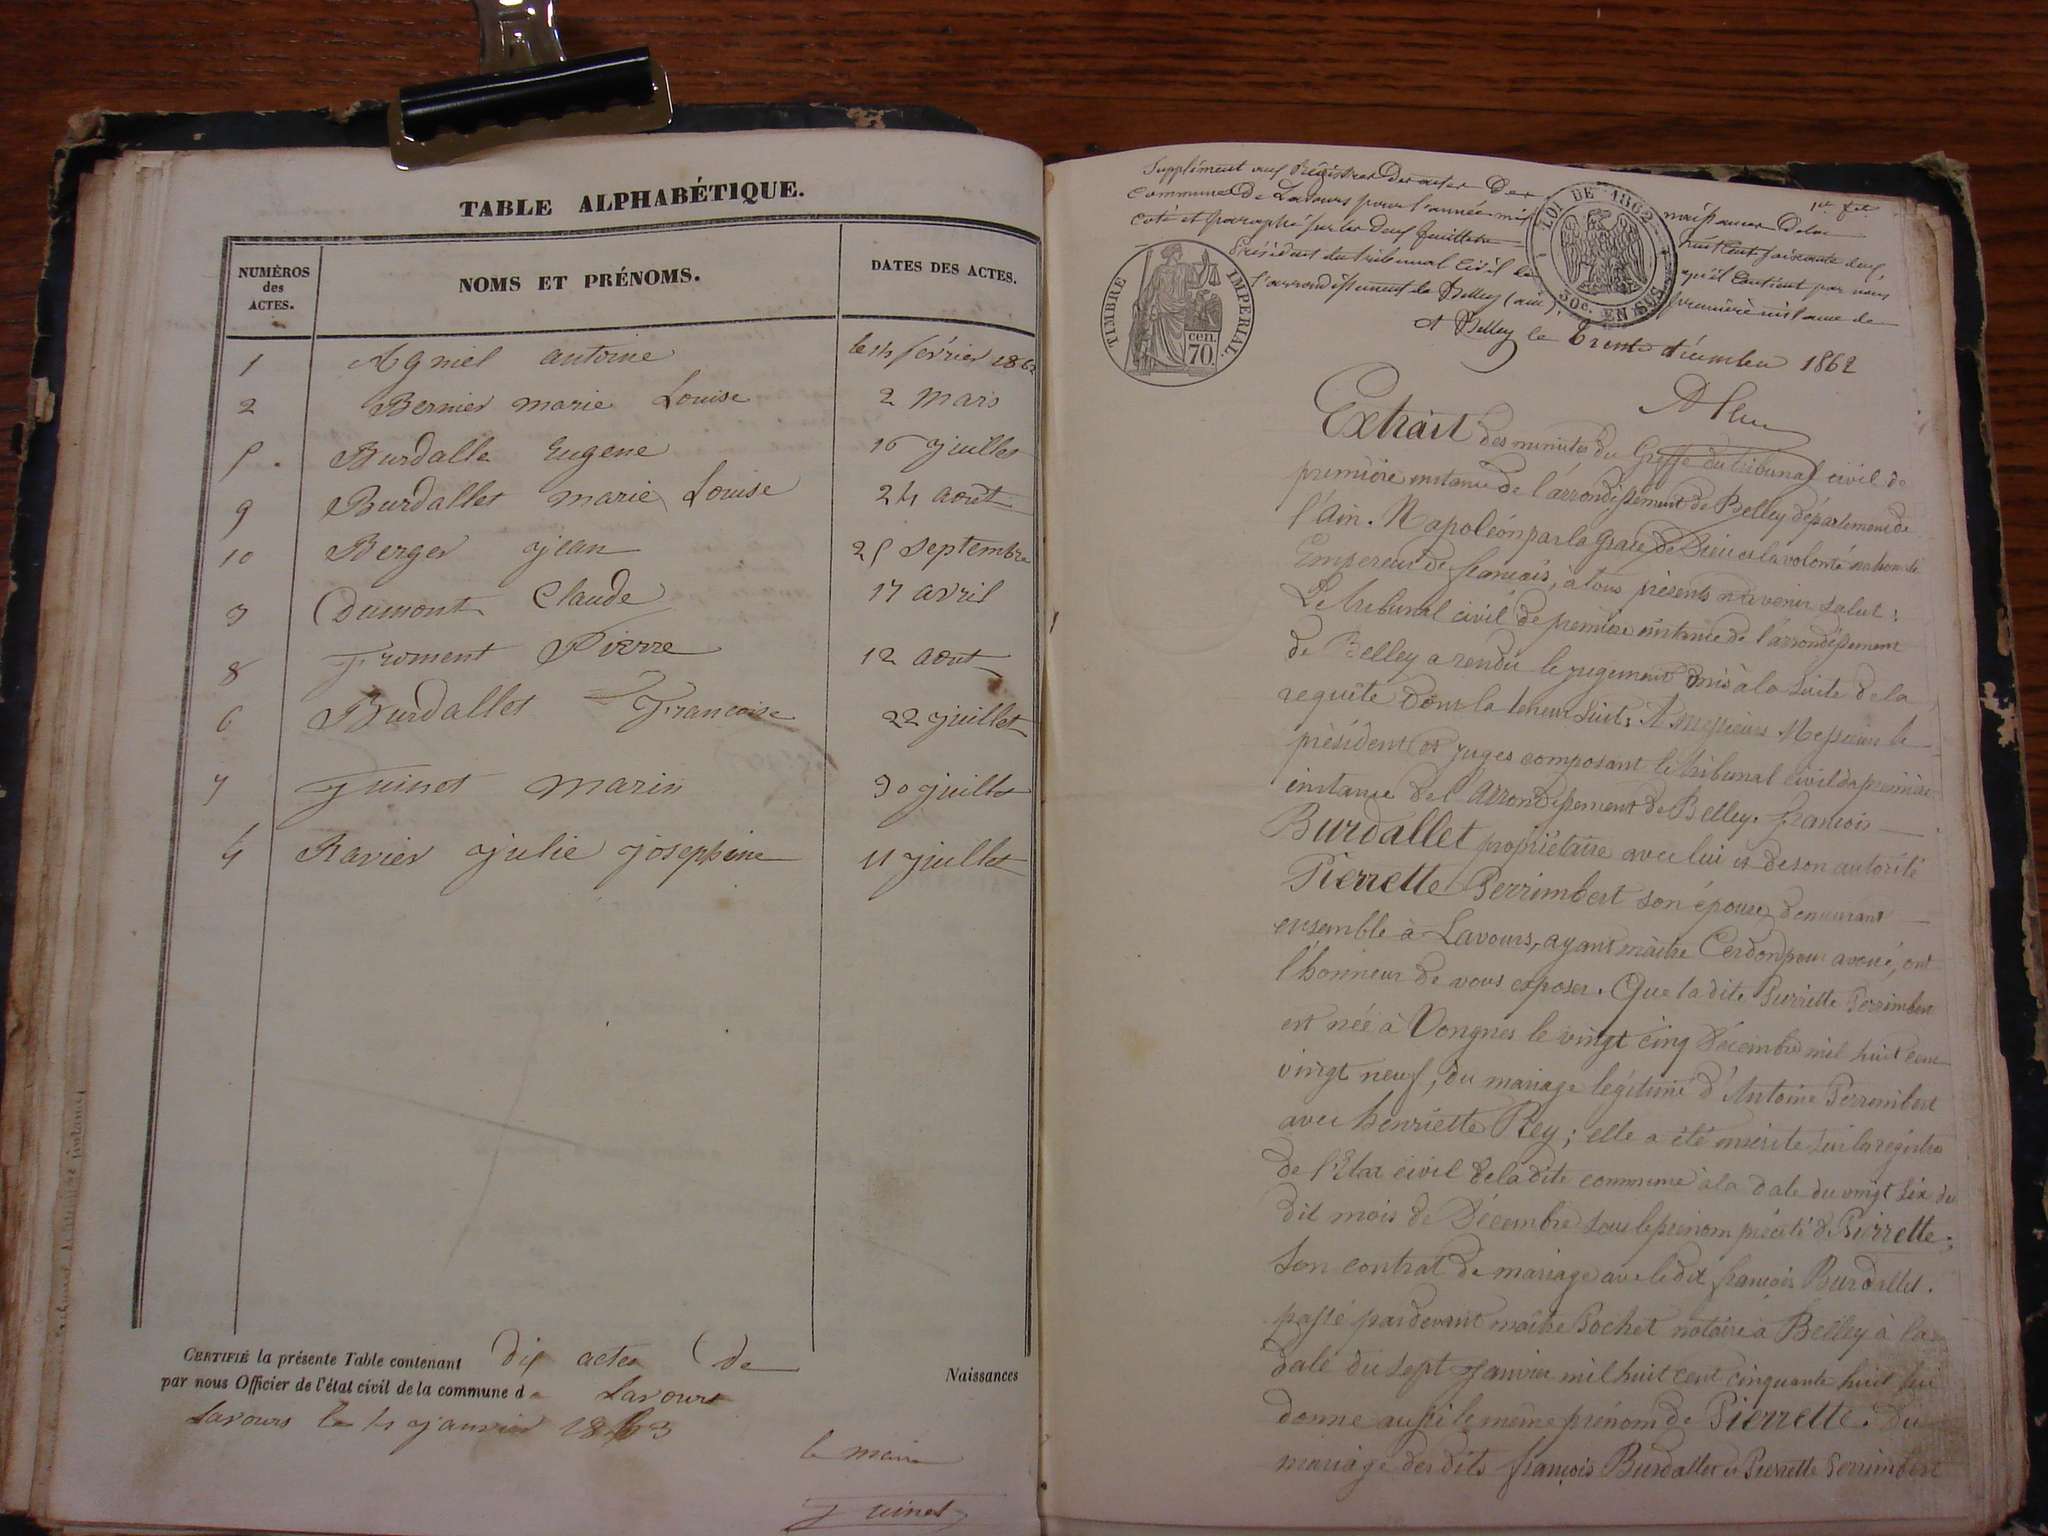 TABLE ALPHABÉTIQUE.
NUMÉROS des ACTES. NOMS ET PRÉNOMS. DATES DES ACTES.
1 Agniel antoine le 14 février 1862
2 Bernier marie Louise 2 mars
5 Burdalle Eugene 16 juillet
9 Burdallet marie Louise 24 août
10 Berger jean 25 septembre
3 Dumont Claude 17 avril
8 Froment Pierre 12 aout
6 Burdallet Françoise 22 juillet
7 Guinet marin 30 juillet
4 Ravier julie josephine 11 juillet
CERTIFIÉ la présente Table contenant dix actes de Naissances
par nous Officier de l'état civil de la commune de Lavours
Lavours le 4 janvier 1863
le maire
Guinet
Supplément aux Régistres des actes de naissances de la
commune de Lavours pour l'année mil huit cent soixante deux,
coté et paraphé sur les deux feuillets qu'il contient par nous
Président du tribunal Civil de première instance de
l'arrondissement de Belley (ain).
A Belley le trente décembre 1862
LOI DE 1862
30c. EN SUS
TIMBRE IMPÉRIAL
70 cen.
Extrait des minutes du Greffe du tribunal civil de
première instance de l'arrondissement de Belley département de
l'Ain. Napoléon par la Grace de Dieu et la volonté nationale
Empereur de français, à tous présents et à venir salut :
Le tribunal civil de première instance de l'arrondissement
de Belley a rendu le jugement mis à la suite de la
requête dont la teneur suit. A Messieurs Messieurs le
président et juges composant le tribunal civil de première
instance de l'Arrondissement de Belley. françois
Burdallet propriétaire avec lui et de son autorité
Pierrette Perrimbert son épouse, demeurant
ensemble à Lavours, ayant maître Cerdon pour avoué, ont
l'honneur de vous exposer. Que la dite Pierrette Perrimbert
est née à Vongnes le vingt cinq Décembre mil huit cent
vingt neuf, du mariage légitime d'Antoine Perrimbert
avec henriette Rey ; elle a été inscrite sur les registres
de l'Etat civil de la dite commune à la date du vingt six du
dit mois de Décembre sous le prénom précité de Pierrette ;
Son contrat de mariage avec le dit françois Burdallet.
passé pardevant maître Pochet notaire à Belley à la
date du sept Janvier mil huit cent cinquante huit lui
donne aussi le même prénom de Pierrette. Du
mariage des dits françois Burdallet et Pierrette Perrimbert